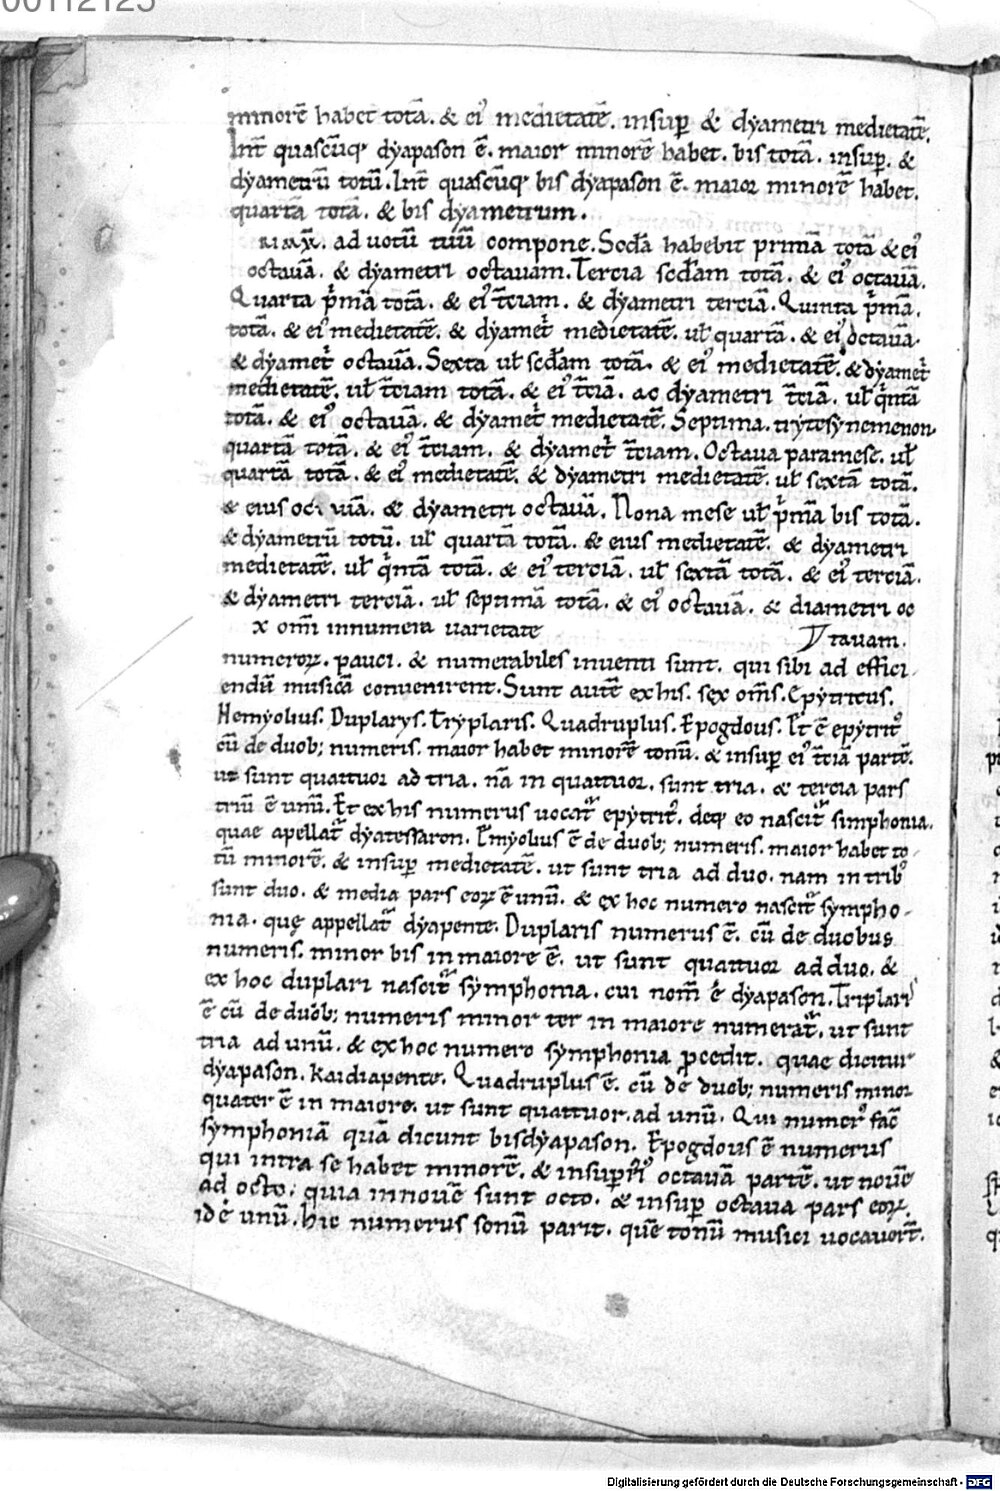 00112125
minorē habet totā. & ei᷒ medietatē. insup̄ & dyametri medietatē.
Int̄ quascūq; dyapason ē. maior minorē habet. bis totā. insup̄. &
dyametrū totū. Int̄ quascūq; bis dyapason ē. maior minorē habet.
quartā totā. & bis dyametrum.
ad uotū tuū compone. Scd̄a habebit primā totā & ei᷒
octauā. & dyametri octauam. Tercia scd̄am totā. & ei᷒ octauā.
Quarta p̄mā totā. & ei᷒ t̄ciam. & dyametri terciā. Quinta p̄mā.
totā. & ei᷒ medietatē. & dyamet̄ medietatē. ul̄ quartā. & ei᷒ octauā.
& dyamet̄ octauā. Sexta ul̄ scd̄am totā. & ei᷒ medietatē. & dyamet̄
medietatē. ul̄ t̄ciam totā. & ei᷒ t̄ciā. ac dyametri t̄ciā. ul̄ q̄ntā
totā. & ei᷒ octauā. & dyamet̄ medietatē. Septima. tritesynemenon.
quartā totā. & ei᷒ t̄ciam. & dyamet̄ t̄ciam. Octaua paramese. ul̄
quartā totā. & ei᷒ medietatē. & dyametri medietatē. ul̄ sextā totā.
& eius & dyametri octauā. Nona mese ul̄ p̄mā bis totā.
& dyametrū totū. ul̄ quartā totā. & eius medietatē. & dyametri
medietatē. ul̄ q̄ntā totā. & ei᷒ terciā. ul̄ sextā totā. & ei᷒ terciā.
& dyametri terciā. ul̄ septimā totā. & ei᷒ octauā. & diametri oc
x om̄i innumera uarietate tauam.
numeroꝝ. pauci. & numerabiles inuenti sunt. qui sibi ad effici
endū musicā conuenirent. Sunt autē ex his. sex om̄s. Epytritus.
Hemyolius. Duplarys. Tryplaris. Quadruplus. Epogdous. Et ē epytrit᷒
cū de duob; numeris. maior habet minorē totū. & insup̄ ei᷒ t̄ciā partē.
ut sunt quattuor ad tria. nā in quattuor. sunt tria. & tercia pars
triū ē unū. Et ex his numerus uocat᷑ epytrit᷒. deq; eo nascit᷑ simphonia.
quae apellat᷑ dyatessaron. Emyolius ē de duob; numeris. maior habet to
tū minorē. & insup̄ medietatē. ut sunt tria ad duo. nam in trib᷒
sunt duo. & media pars eoꝝ ē unū. & ex hoc numero nascit᷑ sympho-
nia. quę appellat᷑ dyapente. Duplaris numerus ē. cū de duobus
numeris. minor bis in maiore ē. ut sunt quattuor ad duo. &
ex hoc duplari nascit᷑ symphonia. cui nom̄ ē dyapason. Triplari᷒
ē cū de duob; numeris minor ter in maiore numerat᷑. ut sunt
tria ad unū. & ex hoc numero symphonia p̄cedit. quae dicitur
dyapason. kaidiapente. Quadruplus ē. cū de duob; numeris minor
quater ē in maiore. ut sunt quattuor ad unū. Qui numer᷒ fac̄
symphoniā quā dicunt bisdyapason. Epogdous ē numerus
qui intra se habet minorē. & insup̄ octauā partē. ut nouē
ad octo. quia in nouē sunt octo. & insup̄ octaua pars eoꝝ.
id ē unū. hic numerus sonū parit. quē tonū musici uocauer̄t.
Digitalisierung gefördert durch die Deutsche Forschungsgemeinschaft - DFG